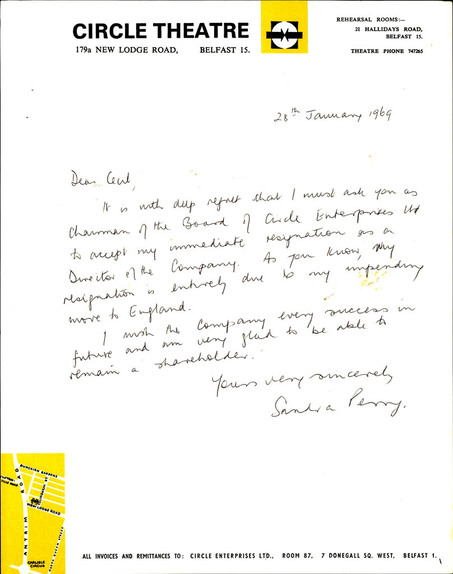 CIRCLE THEATRE
179a NEW LODGE ROAD, BELFAST 15.
REHEARSAL ROOMS:—
21 HALLIDAYS ROAD,
BELFAST 15.
THEATRE PHONE 747265
28th January 1969
Dear Cecil,
It is with deep regret that I must ask you as
Chairman of the Board of Circle Enterprises Ltd
to accept my immediate resignation as a
Director of the Company. As you know, my
resignation is entirely due to my impending
move to England.
I wish the Company every success in
future and am very glad to be able to
remain a shareholder.
Yours very sincerely
Sandra Perry.
DUNCAIRN GARDENS
NEW LODGE ROAD
ANTRIM ROAD
CARLISLE
CIRCUS
ALL INVOICES AND REMITTANCES TO: CIRCLE ENTERPRISES LTD., ROOM 87, 7 DONEGALL SQ. WEST, BELFAST 1.